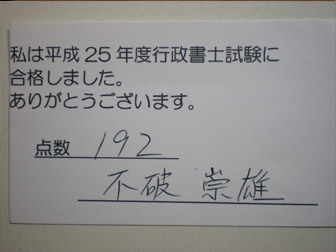 私は平成25年度行政書士試験に
合格しました。
ありがとうございます。
点数 192
不破 崇雄